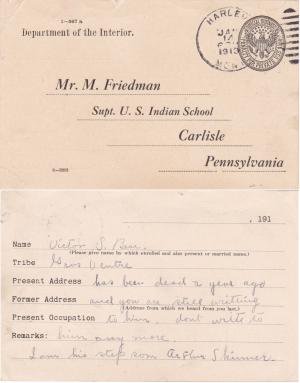 1-967 a
Department of the Interior.
HARLEM
JAN
14
1913
MONT
Mr. M. Friedman
Supt. U. S. Indian School
Carlisle
Pennsylvania
, 191
Name Victor S. Bear.
(Please give name by which enrolled and also present or married name.)
Tribe Gros Ventre
Present Address has been dead 2 year ago
Former Address and you are still writting
(Address from which we heard from you last.)
Present Occupation to him. dont write to
Remarks: him any more.
I am his step son Arthur Skinner.